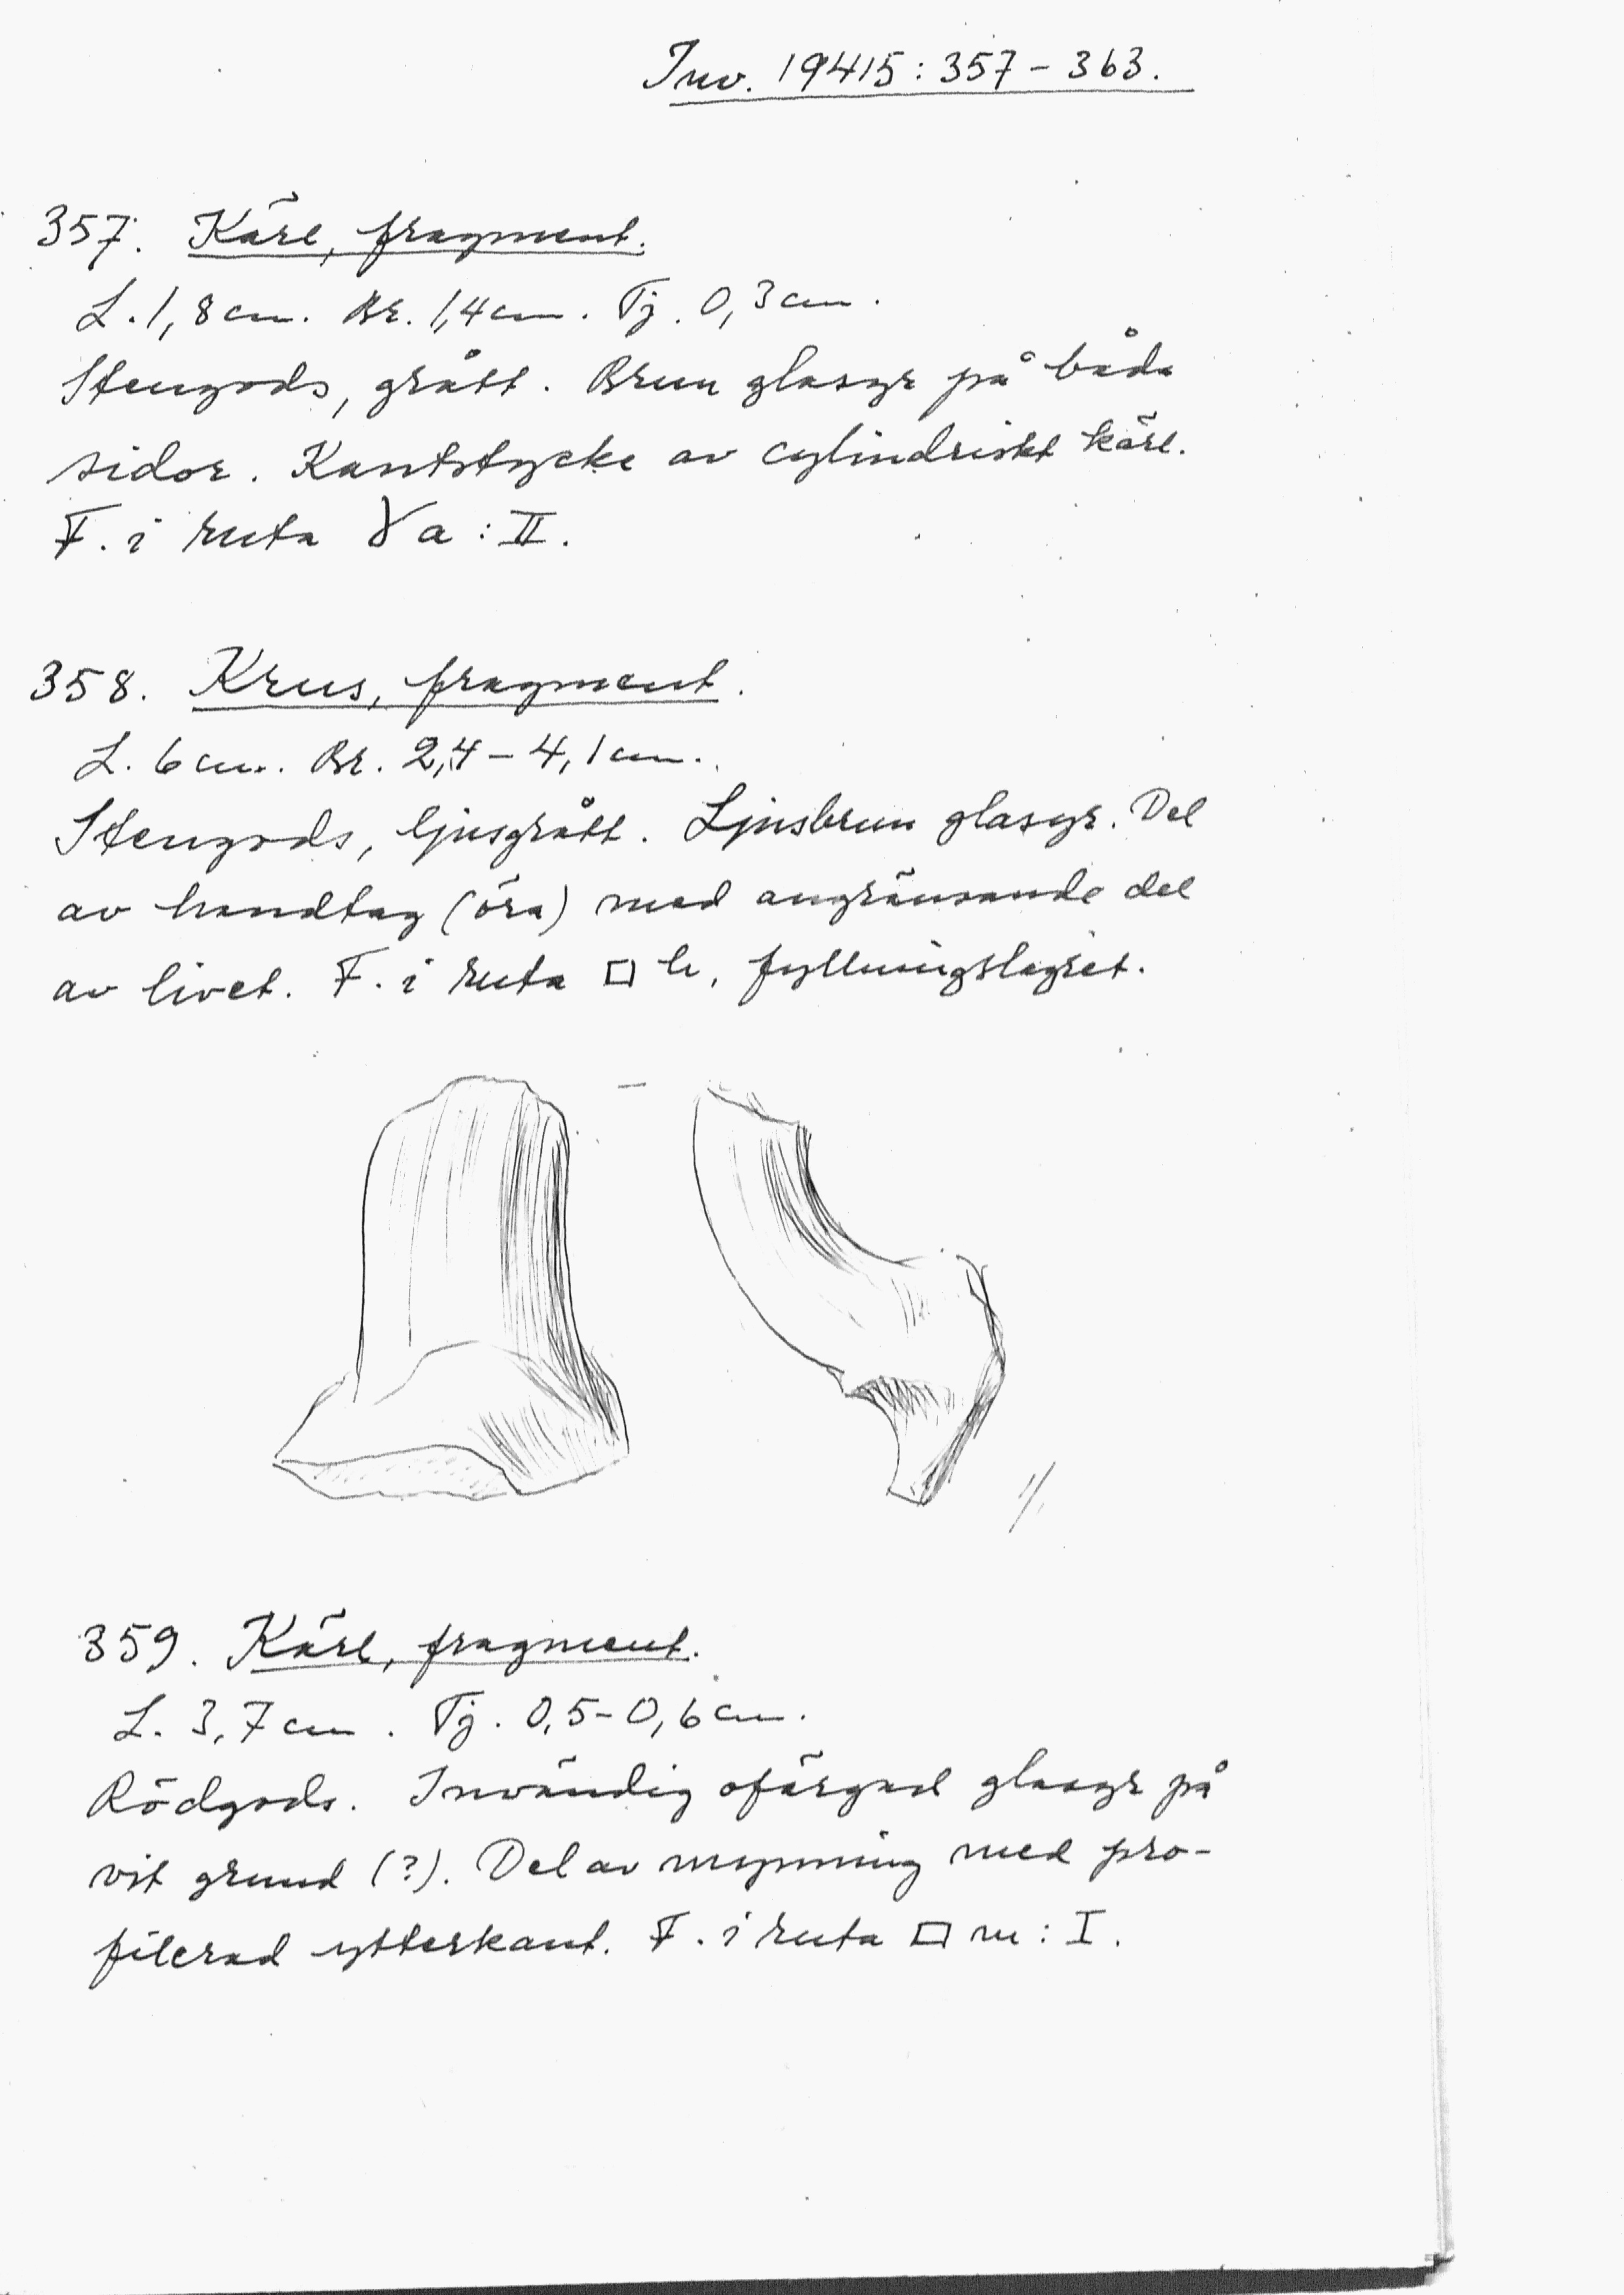 Inv. 19415:357-363.
357. Kärl, fragment.
L. 1,8 cm. Br. 1,4 cm. Tj. 0,3 cm.
Stengods, grått. Brun glasyr på båda
sidor. Kantstycke av cylindriskt kärl.
F. i ruta γa:II.
358. Krus, fragment.
L. 6 cm. Br. 2,4-4,1 cm.
Stengods, ljusgrått. Ljusbrun glasyr. Del
av handtag (öra) med angränsande del
av livet. F. i ruta □ h, fyllningslagret.
1/1
359. Kärl, fragment.
L. 3,7 cm. Tj. 0,5-0,6 cm.
Rödgods. Invändig ofärgad glasyr på
vit grund (?). Del av mynning med pro-
filerad ytterkant. F. i ruta □ m: I.